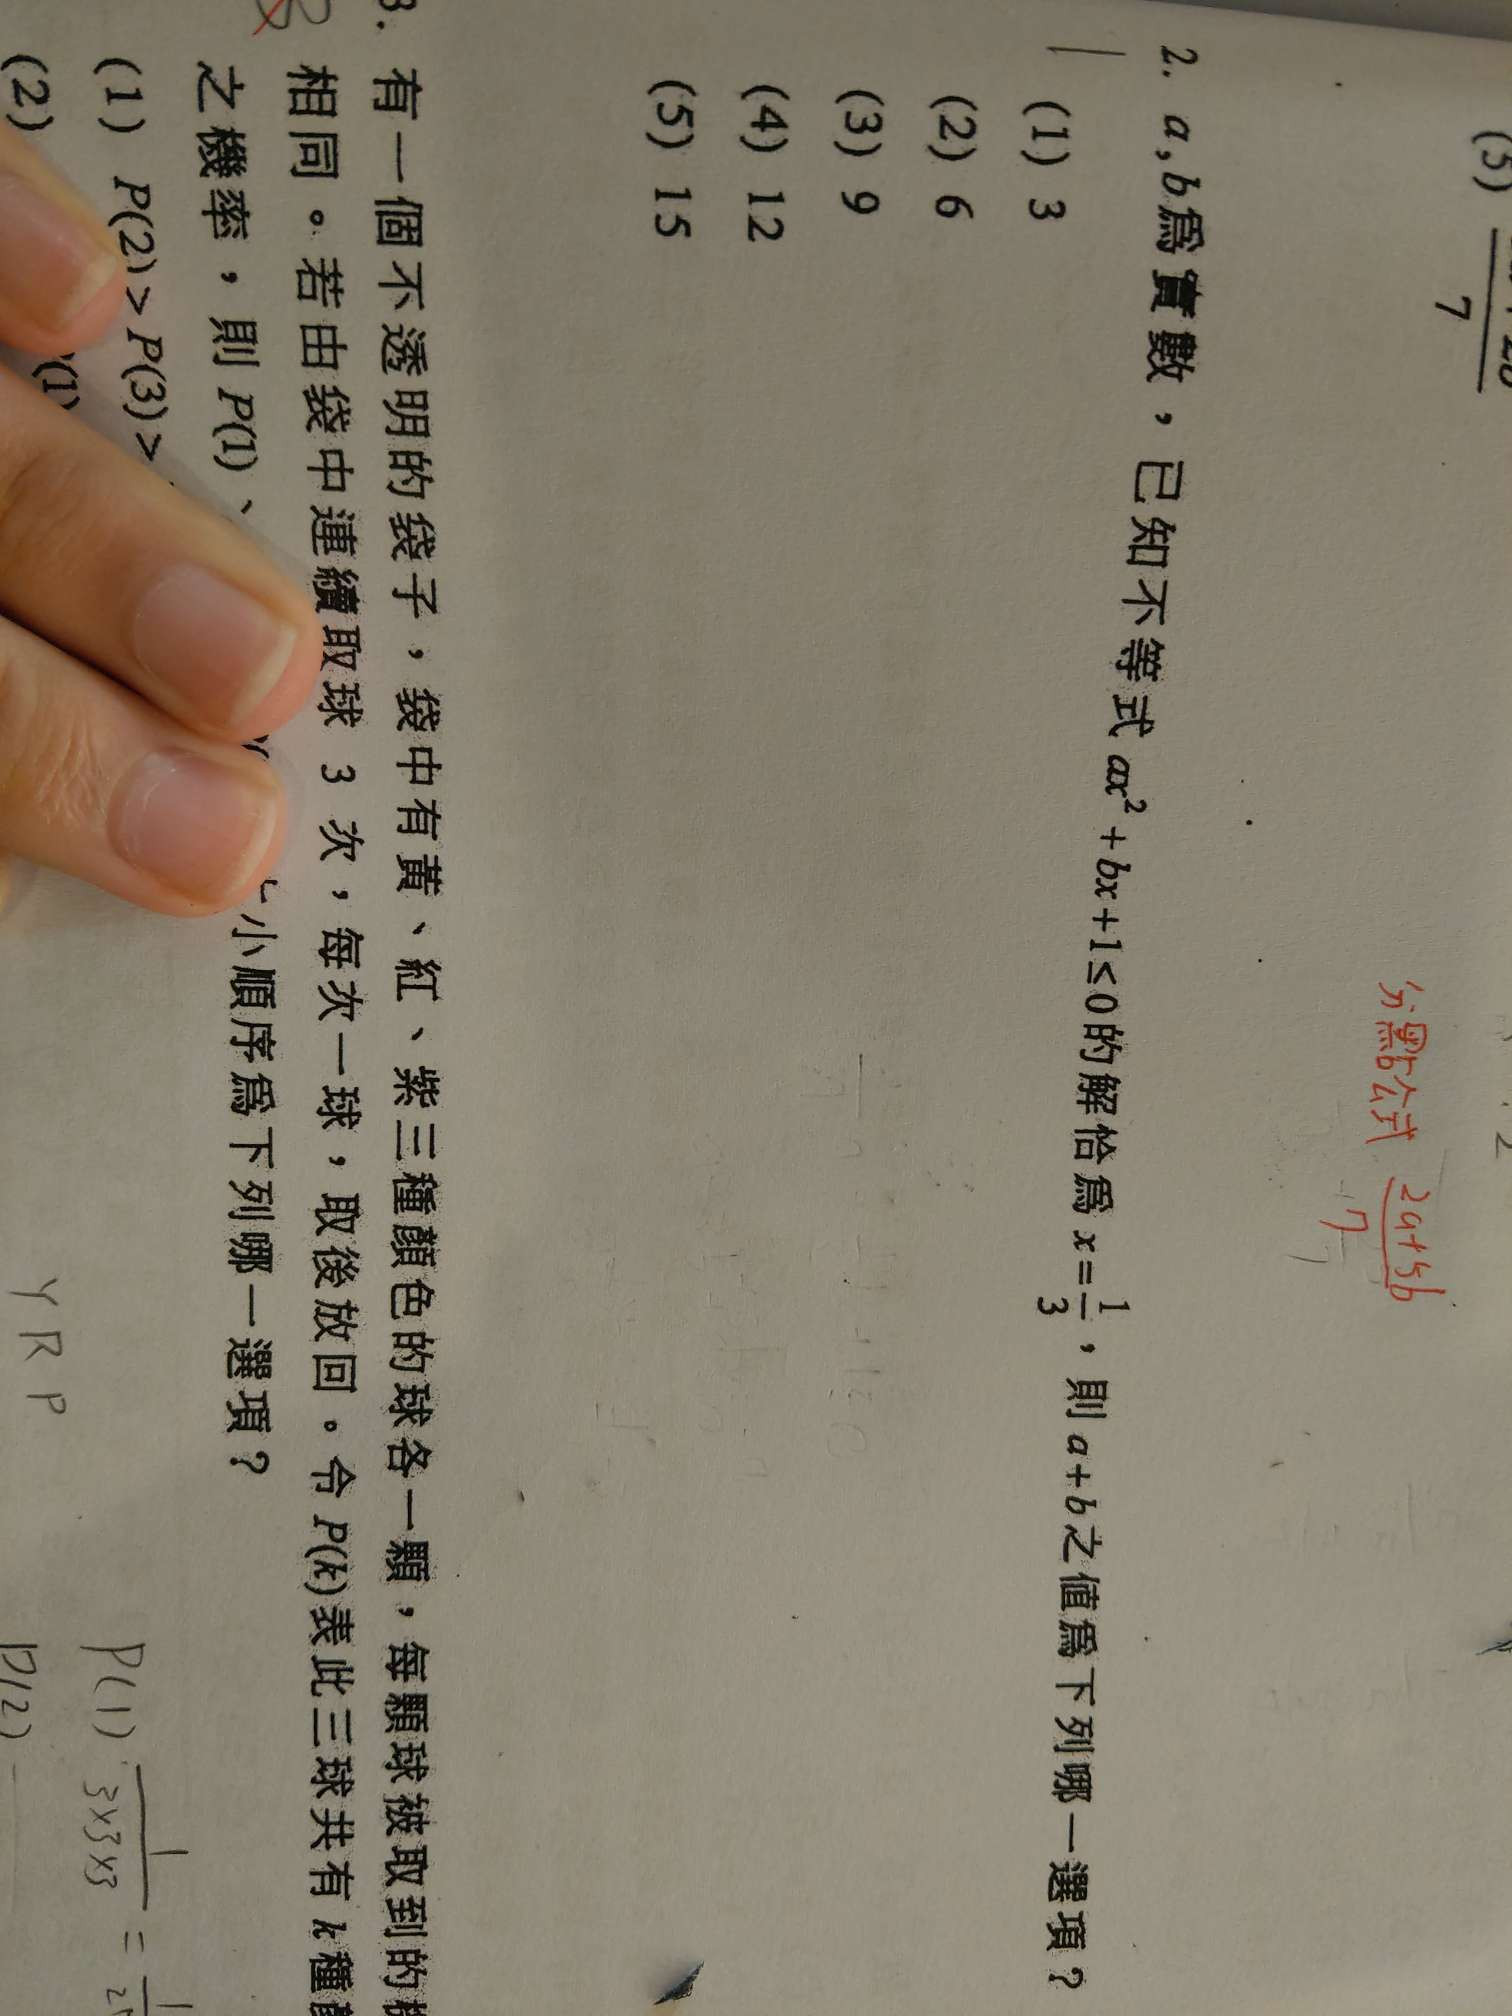 (5)
7
分點公式 2a+5b
7
2. a,b為實數，已知不等式ax²+bx+1≤0的解恰為x=1/3，則a+b之值為下列哪一選項？
(1) 3
(2) 6
(3) 9
(4) 12
(5) 15
3. 有一個不透明的袋子，袋中有黃、紅、紫三種顏色的球各一顆，每顆球被取到的
相同。若由袋中連續取球 3 次，每次一球，取後放回。令P(k)表此三球共有k種
之機率，則P(1)、
小順序為下列哪一選項？
(1) P(2)>P(3)>
(2)
Y R P
P(1) 1/3×3×3 =
P(2)